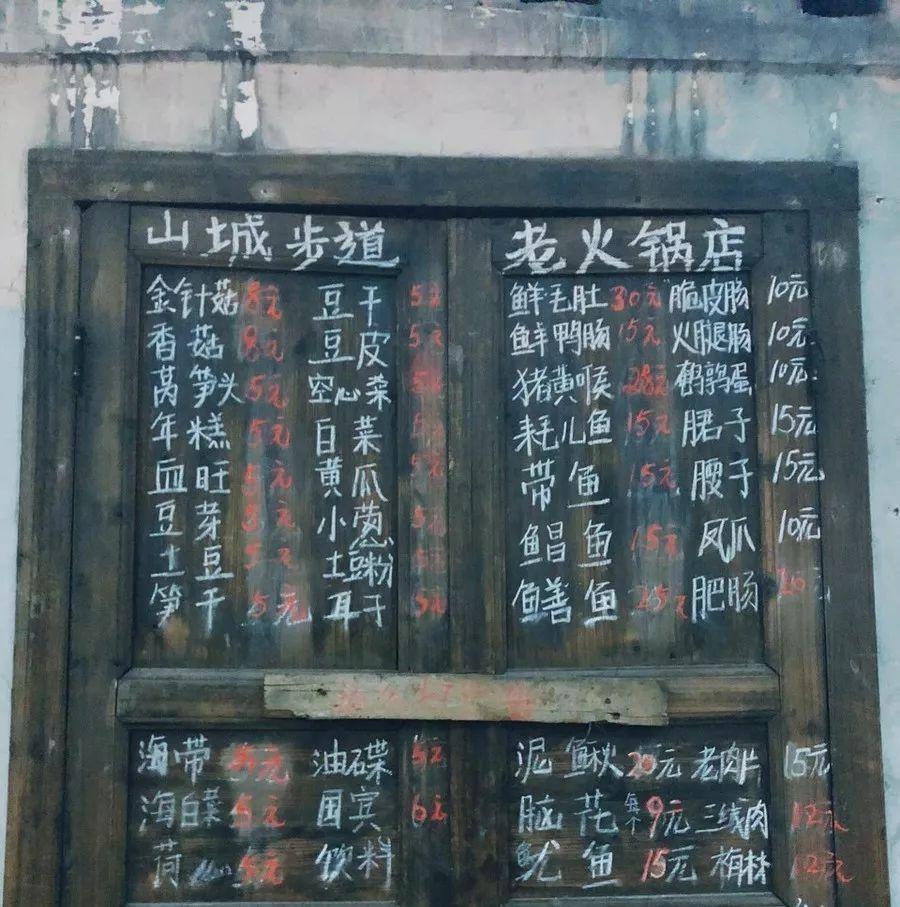 山城步道 老火锅店
金针菇 8元 豆干 5元
香菇 8元 豆皮 5元
莴笋头 5元 空心菜 5元
年糕 5元 白菜 5元
血旺 5元 黄瓜 5元
豆芽 5元 小葱 5元
土豆 5元 土豆粉 5元
笋干 5元 耳子 5元
鲜毛肚 30元 脆皮肠 10元
鲜鸭肠 15元 火腿肠 10元
猪黄喉 28元 鹌鹑蛋 10元
耗儿鱼 15元 䐃子 15元
带鱼 15元 腰子 15元
鲳鱼 15元 凤爪 10元
鳝鱼 25元 肥肠 20元
海带 5元 油碟 5元
海白菜 5元 国宾 6元
5元 饮料
泥鳅 20元 老肉片 15元
脑花 每个9元 三线肉 12元
鱿鱼 15元 梅林 12元